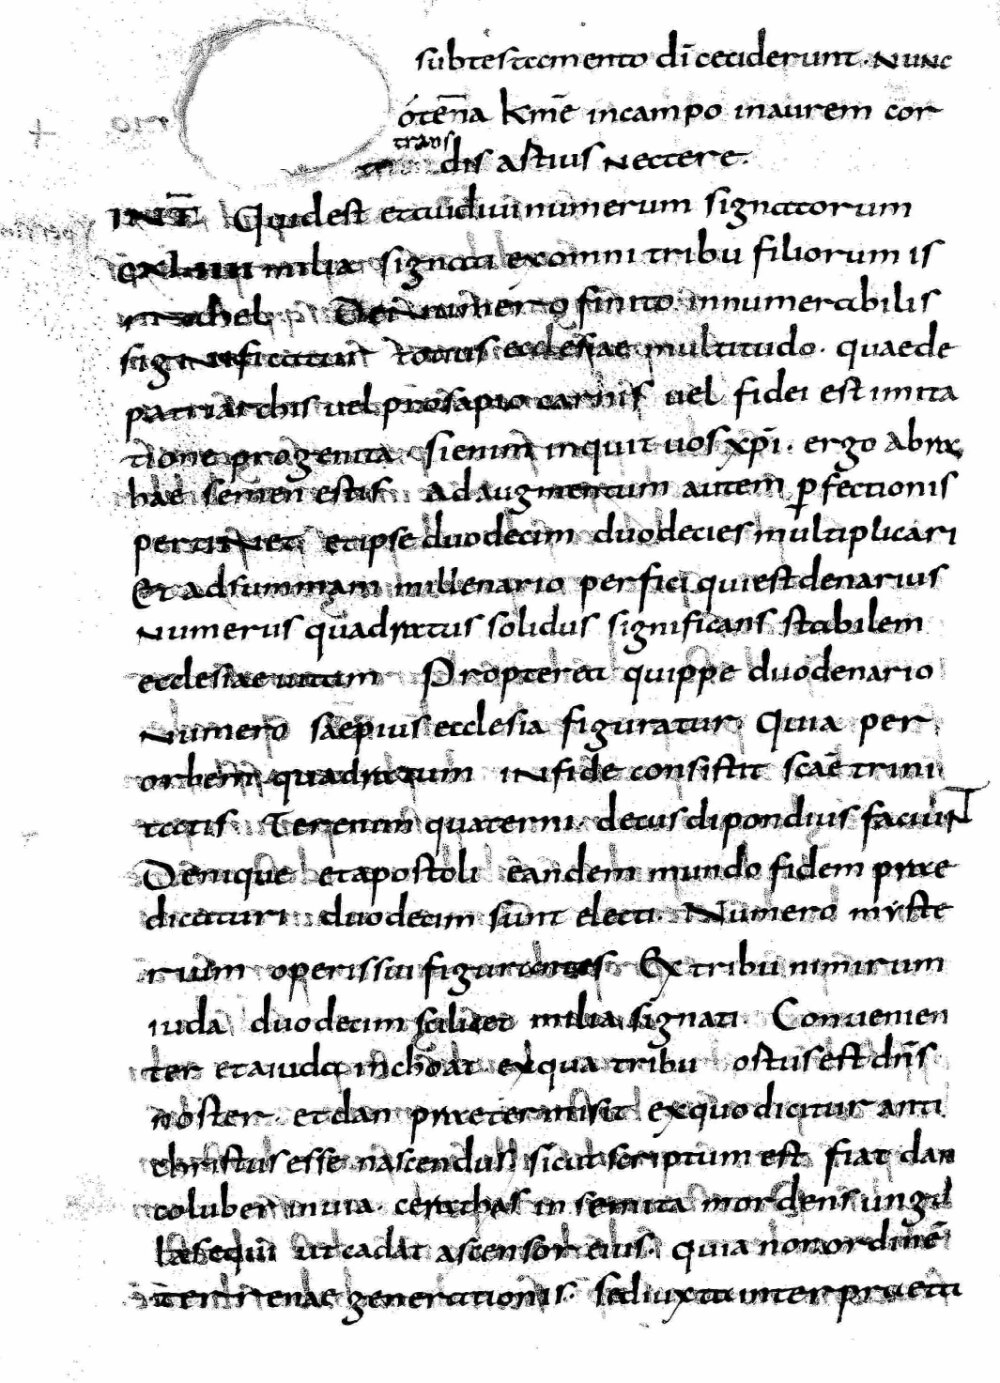 sub testamento dī ceciderunt. Nunc
incampo inaurem cor
trans
dis astius nectere.
INT̄ Quid est et cui duii numerum signatorum
CXLIIII milia signati ex omni tribu filiorum is
rahel finito innumerabilis
significatur totius ecclesiae multitudo. quae de
patriarchis vel prosapio carnis vel fidei est imita
tione progenita si enim inquit uos xp̄i. ergo abra
hae semen estis. Ad augmentum autem ꝑfectionis
pertinet et ipse duodecim duodecies multiplicari
Et ad summam millenario perfici qui est denarius
numerus quadratus solidus significans stabilem
ecclesiae uitam Propterea quippe duodenario
Numero saepius ecclesia figuratur. Quia per
orbem quadratum in fide consistit scāe trini
tatis Ter enim quaterni. decus dipondius faciunt
Denique et apostoli eandem mundo fidem prae
dicaturi duodecim sunt electi. Numero myste
rium operis sui figurantes. Ex tribu nimirum
iuda duodecim scilicet milia signati. Conuenien
ter et a iuda inchoat ex qua tribu ostus est dn̄s
noster. et dan praetermisit ex quo dicitur anti
christus esse nascendus. sicut scriptum est fiat dan
coluber in uia. cerasthas in semita mordens ungu
las equi ut cadat ascensor eius. quia non ordinē
terrenae generationis. sed iuxta interpraeta